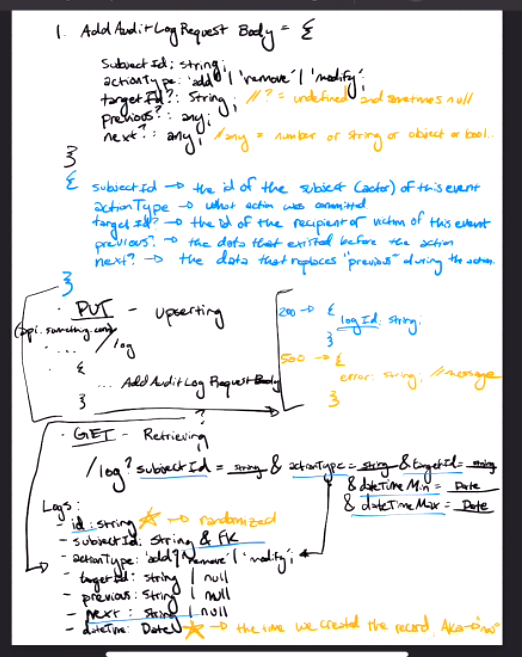 1. Add Audit Log Request Body = {
subject Id: string;
actionType: 'add' | 'remove' | 'modify';
target Id?: string; // ? = undefined and sometimes null
previous?: any;
next?: any; // any = number or string or object or bool..
}
{ subject Id → the id of the subject (actor) of this event
action Type → what action was committed
target Id? → the id of the recipient or victim of this event
previous? → the data that existed before the action
next? → the data that replaces "previous" during the action
}
· PUT - upserting
(api.something.com)
.... /log
{
... Add Audit Log Request Body
}
200 → {
log Id: string;
}
500 → {
error: string; // message
}
?
· GET - Retrieving
/log? subject Id = string & actionType = string & targetId = string
& dateTime Min = Date
& dateTime Max = Date
Logs:
- id: string ☆ → randomized
- subject Id: string & FK
- action Type: 'add' | 'remove' | 'modify';
- target Id: string | null
- previous: string | null
- next: string | null
- dateTime: Date ☆ → the time we created the record, AKA → "now"